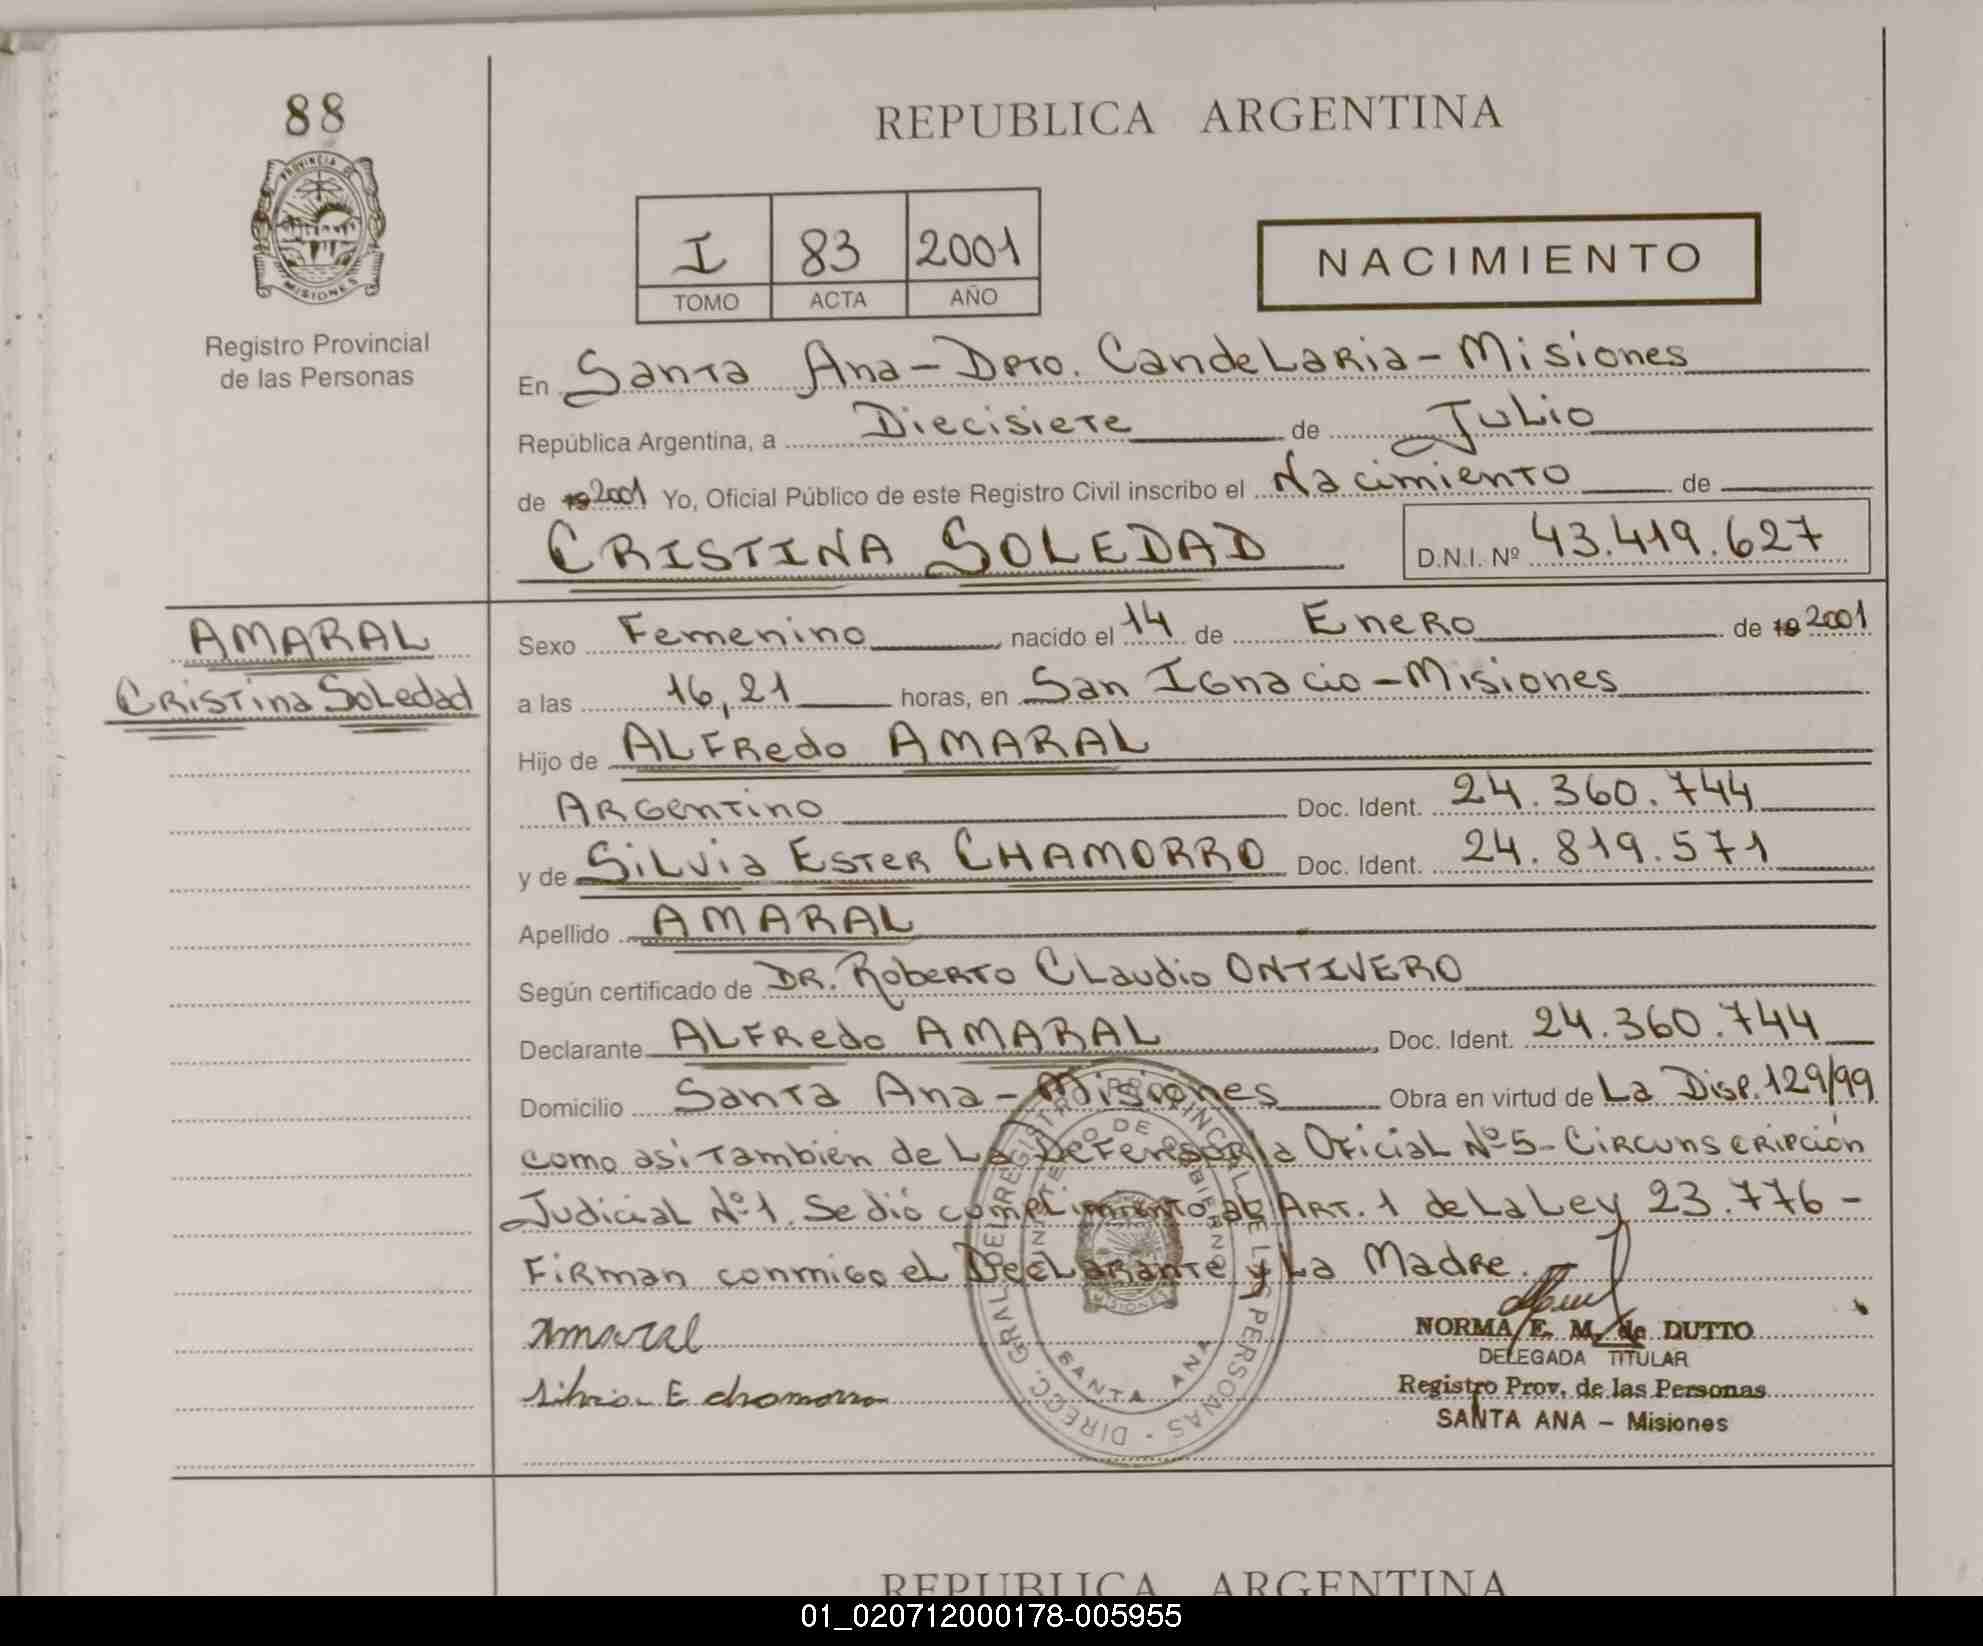 88
REPUBLICA ARGENTINA
PROVINCIA DE
MISIONES
I 83 2001
TOMO ACTA AÑO
NACIMIENTO
Registro Provincial
de las Personas
En Santa Ana - Dpto. Candelaria - Misiones
República Argentina, a Diecisiete de Julio
de 19 2001 Yo, Oficial Público de este Registro Civil inscribo el Nacimiento de
CRISTINA SOLEDAD D.N.I. Nº 43.419.627
AMARAL
Cristina Soledad
Sexo Femenino nacido el 14 de Enero de 19 2001
a las 16,21 horas, en San Ignacio - Misiones
Hijo de Alfredo AMARAL
Argentino Doc. Ident. 24.360.744
y de Silvia Ester CHAMORRO Doc. Ident. 24.819.571
Apellido AMARAL
Según certificado de DR. Roberto Claudio ONTIVERO
Declarante Alfredo AMARAL Doc. Ident. 24.360.744
Domicilio Santa Ana - Misiones Obra en virtud de La Disp. 129/99
como asi También de La Defensoria Oficial Nº 5 - Circunscripción
Judicial Nº 1. Se dió cumplimiento al Art. 1 de La Ley 23.776 -
Firman conmigo el Declarante y La Madre.
Amaral
Silvia E chamorro
DIRECC. GRAL. DEL REGISTRO PROVINCIAL DE LAS PERSONAS
MINISTERIO DE GOBIERNO
MISIONES
SANTA ANA
NORMA E. M. de DUTTO
DELEGADA TITULAR
Registro Prov. de las Personas
SANTA ANA - Misiones
REPUBLICA ARGENTINA
01_020712000178-005955